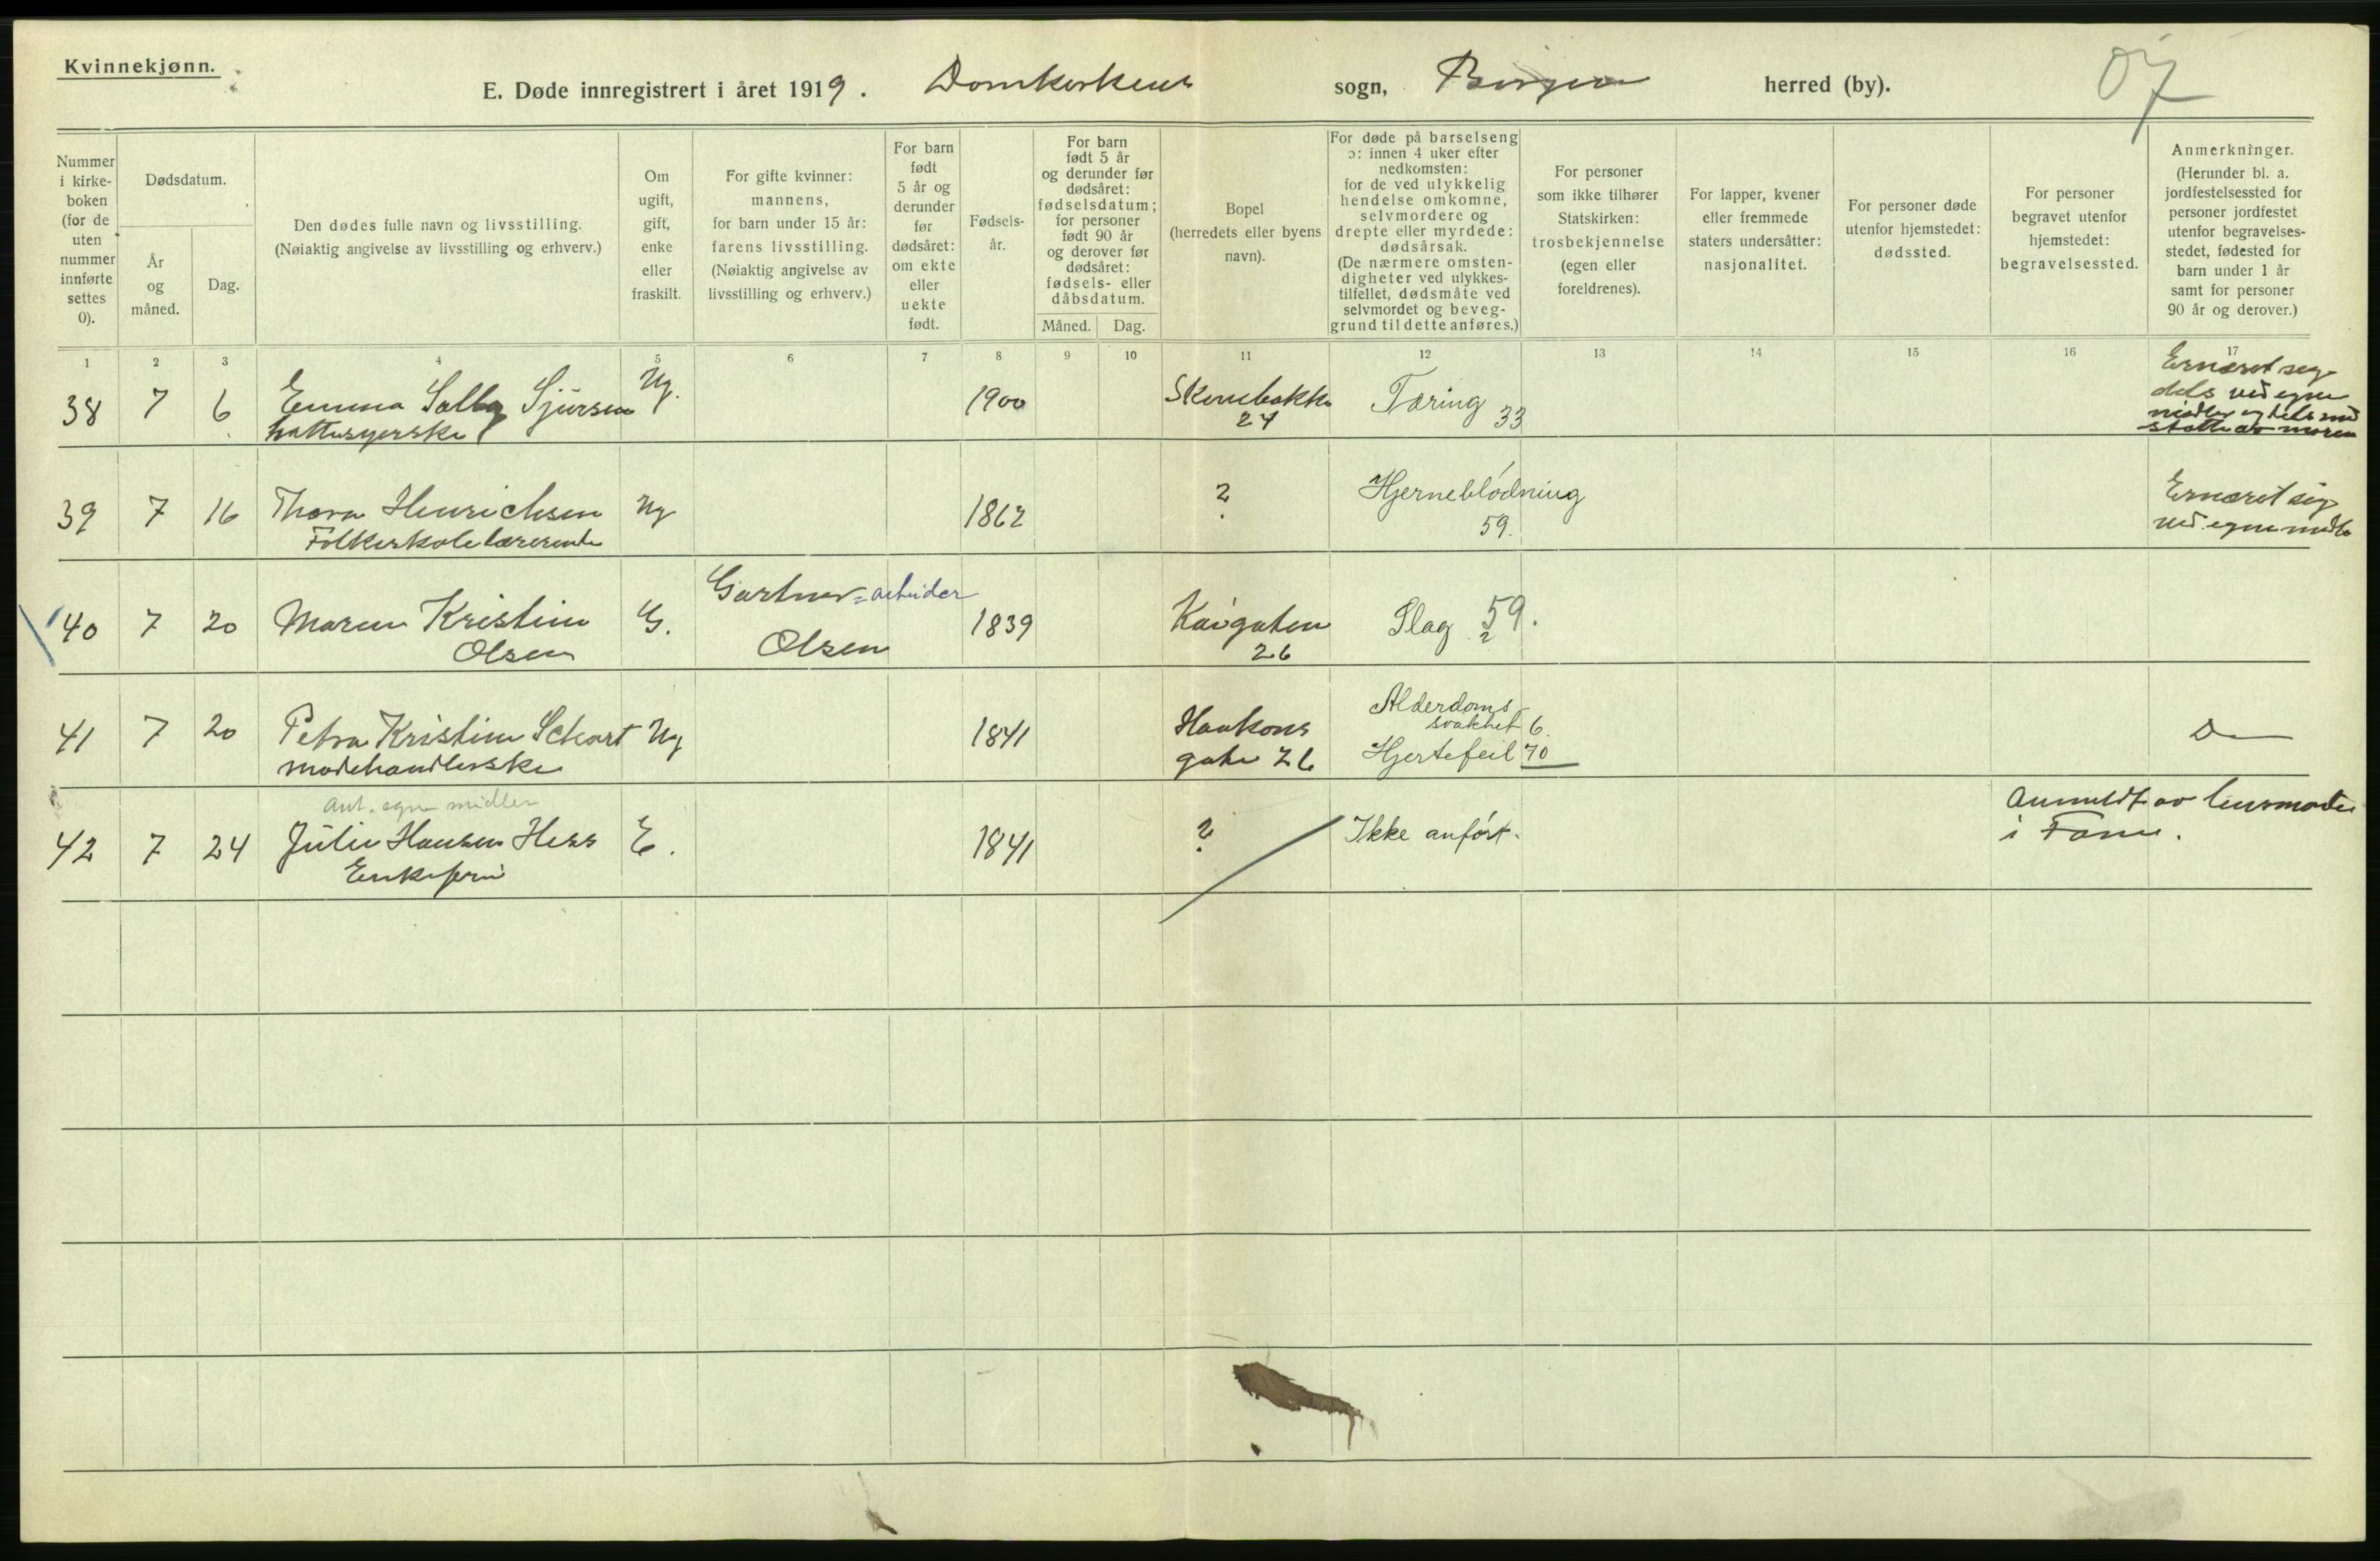 Kvinnekjønn.
E. Døde innregistrert i året 1919. Domkirkens sogn, Bergen herred (by).
07
Nummer i kirkeboken (for de uten nummer innførte settes 0).
Dødsdatum.
År og måned.
Dag.
Den dødes fulle navn og livsstilling.
(Nøiaktig angivelse av livsstilling og erhverv.)
Om ugift, gift, enke eller fraskilt.
For gifte kvinner: mannens, for barn under 15 år: farens livsstilling. (Nøiaktig angivelse av livsstilling og erhverv.)
For barn født 5 år og derunder før dødsåret: om ekte eller uekte født.
Fødselsår.
For barn født 5 år og derunder før dødsåret: fødselsdatum; for personer født 90 år og derover før dødsåret: fødsels- eller dåbsdatum.
Måned.
Dag.
Bopel (herredets eller byens navn).
For døde på barselseng ɔ: innen 4 uker efter nedkomsten: for de ved ulykkelig hendelse omkomne, selvmordere og drepte eller myrdede: dødsårsak. (De nærmere omstendigheter ved ulykkestilfellet, dødsmåte ved selvmordet og beveggrund til dette anføres.)
For personer som ikke tilhører Statskirken: trosbekjennelse (egen eller foreldrenes).
For lapper, kvener eller fremmede staters undersåtter: nasjonalitet.
For personer døde utenfor hjemstedet: dødssted.
For personer begravet utenfor hjemstedet: begravelsessted.
Anmerkninger. (Herunder bl. a. jordfestelsessted for personer jordfestet utenfor begravelsesstedet, fødested for barn under 1 år samt for personer 90 år og derover.)
1 2 3 4 5 6 7 8 9 10 11 12 13 14 15 16 17
38 7 6 Emma Solby Sjursen Ug. 1900 Tæring 33
hattesyerske
24
Ernæret seg
dels ved egne
midler og dels med
støtte av moren
39 7 16 Thora Henrichsen Ug 1862 ? Hjerneblødning
Folkeskolelærerinde
59.
Ernæret sig
ved egne midler
40 7 20 Maren Kristine G. Gartner=arbeider 1839 Kaigaten Slag 59.
2
Olsen Olsen 26
41 7 20 Petra Kristine Ug 1841 Haakons Alderdoms
svakhet 6.
modehandlerske gate 26 Hjertefeil 70
Do
Ant. egne midler
42 7 24 Julie Hansen Hess E. 1841 ? Ikke anført.
Enkefrue
Anmeldt av lensmanden
i Fane.